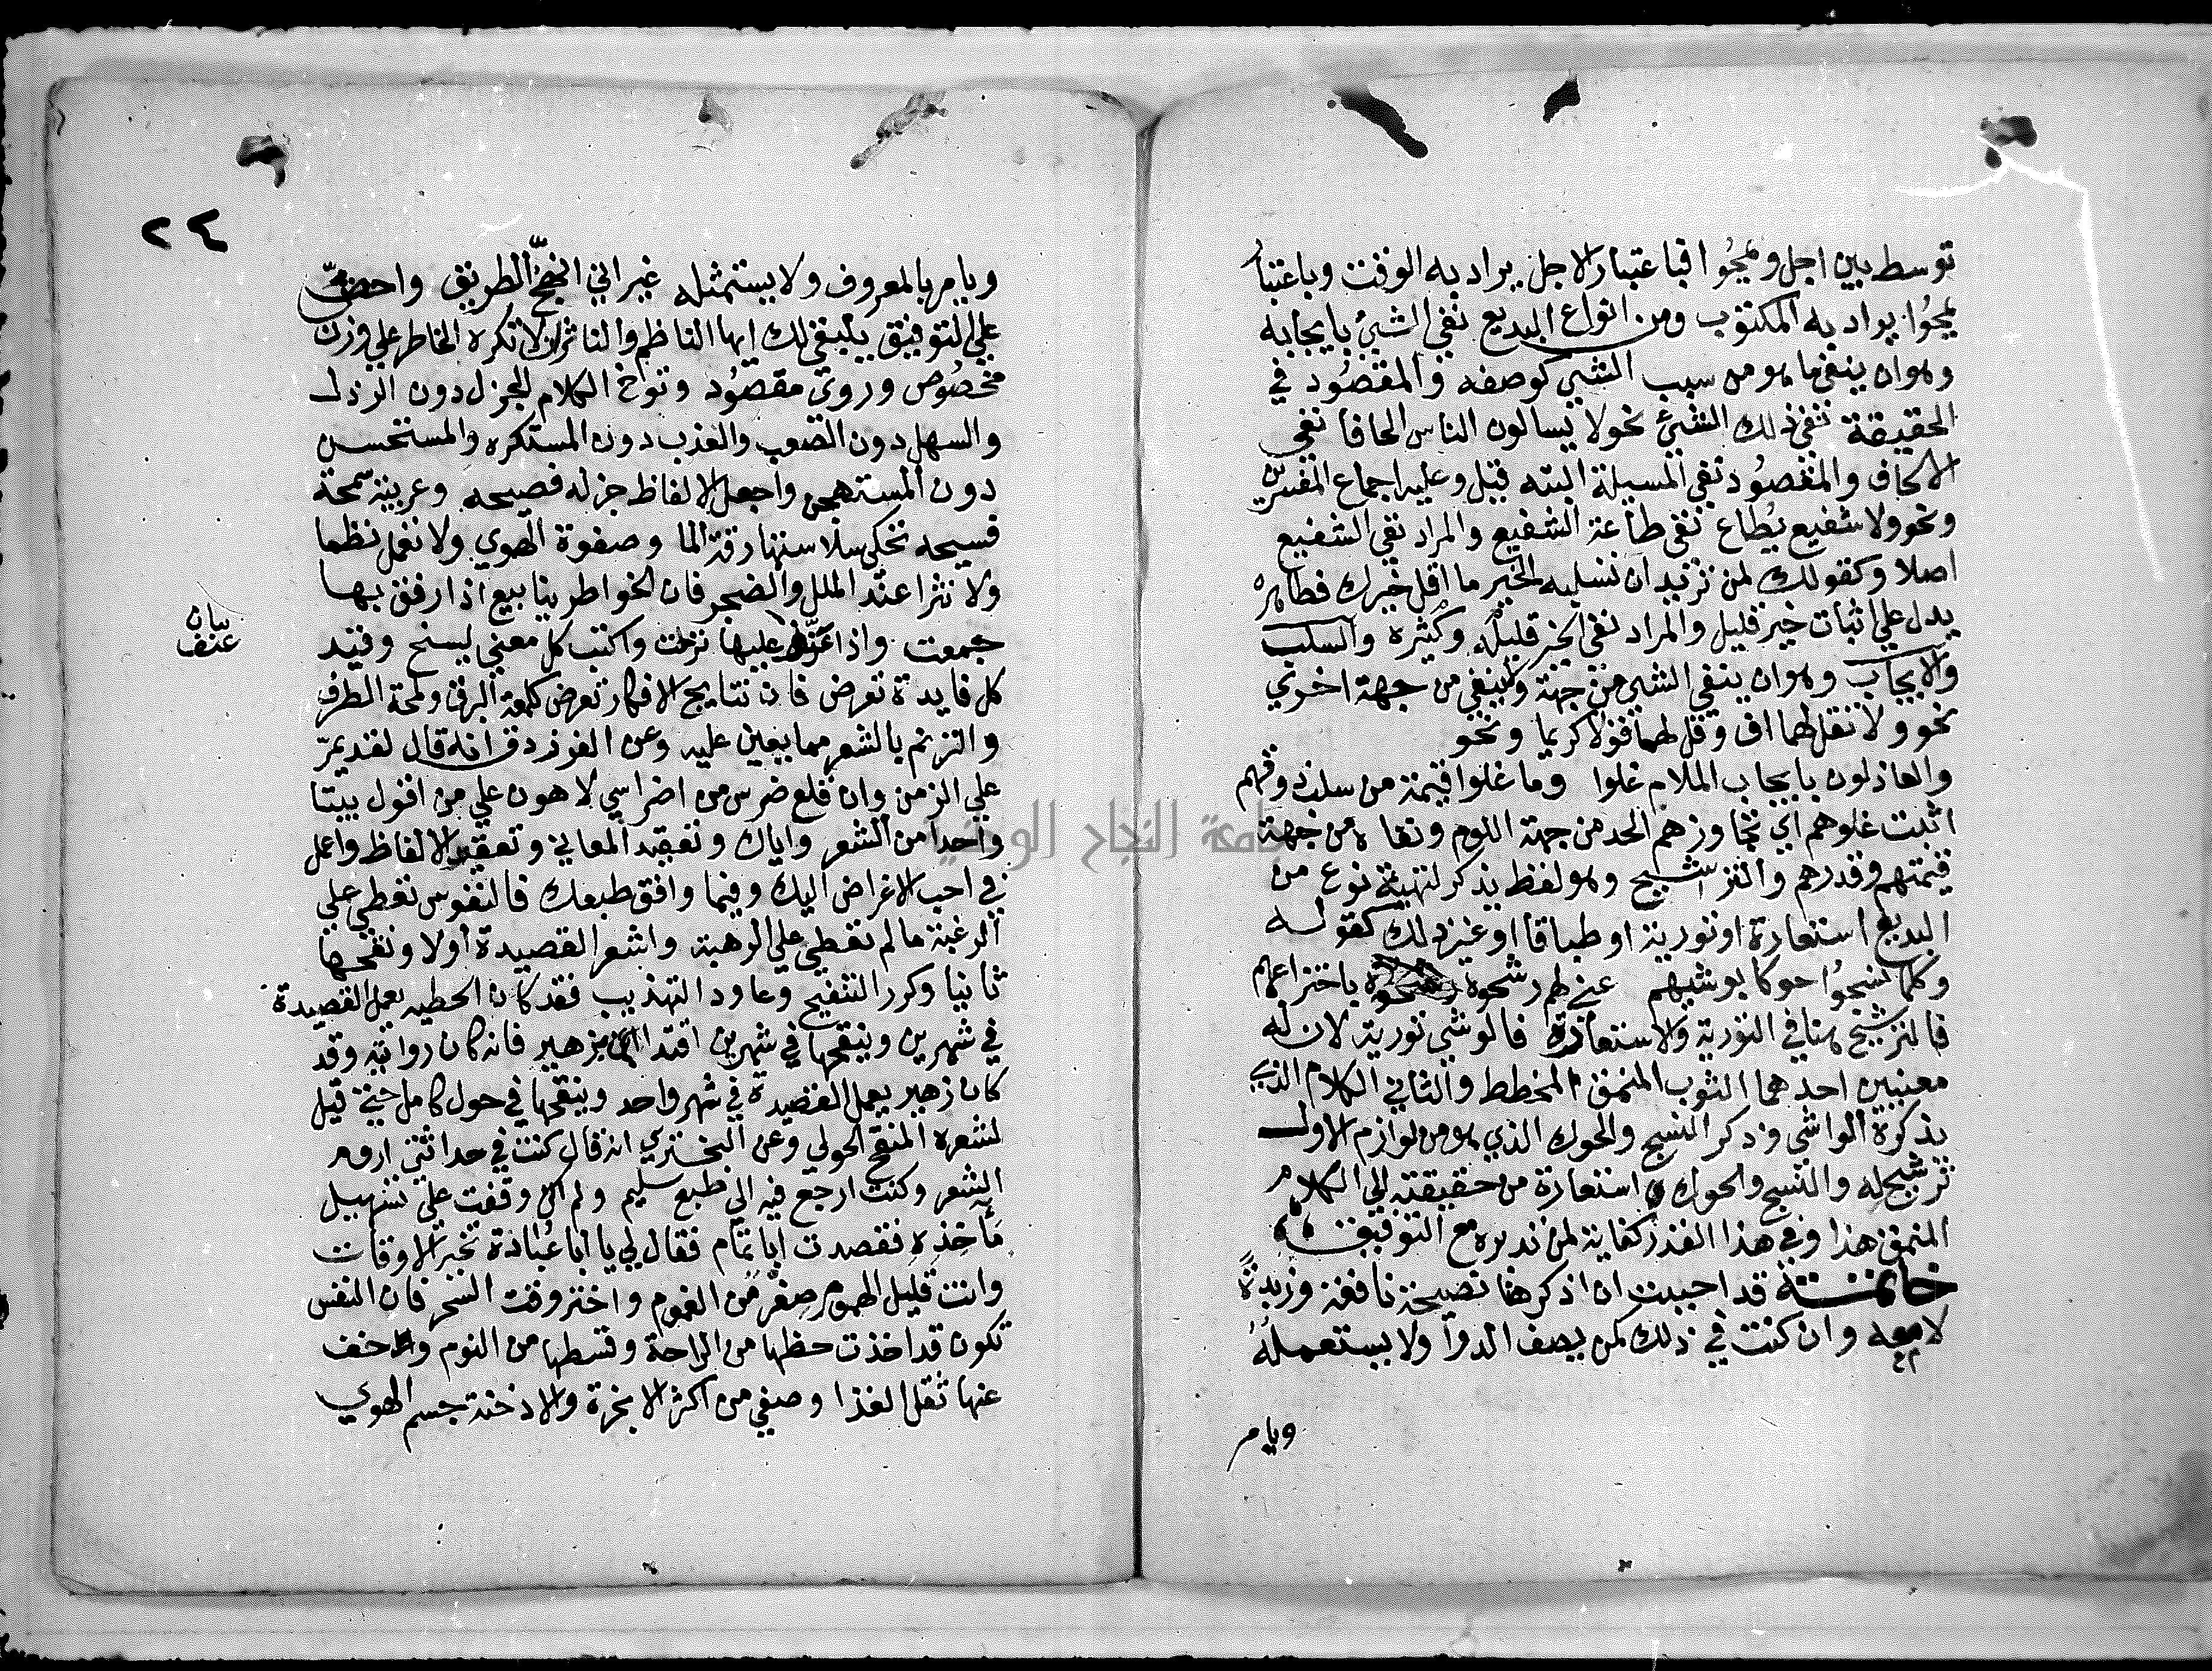 توسط بين اجل ويمحوا فباعتبار الاجل يراد به الوقت وباعتبار
يمحوا يراد به المكتوب ومن انواع البديع نفي الشيئ بايجابه
وهو ان ينفي ما هو من سبب الشيئ كوصفه والمقصود في
الحقيقة نفي ذلك الشيئ نحو لا يسالون الناس الحافا نفي
الالحاف والمقصود نفي المسيلة البته قيل وعليه اجماع المفسرين
ونحو ولا شفيع يطاع نفي طاعة الشفيع والمراد نفي الشفيع
اصلا وكقولك لمن تريد ان تسلبه الخير ما اقل خيرك فظاهره
يدل علي اثبات خير قليل والمراد نفي الخير قليله وكثيره والسلب
والايجاب وهو ان ينفي الشيئ من جهة من جهة اخري
نحو ولا تقل لهما اف وقل لهما قولا كريما ونحو
والعاذلون بايجاب الملام غلوا وما غلوا قيمة من سلب ذوقهم
اثبت غلوهم اي تجاوزهم الحد من جهة اللوم ونفاه من جهة
قيمتهم وقدرهم والترشيح وهو لفظ يذكر لتهيئة نوع من
البديع استعارة او تورية او طباقا او غير ذلك كقوله
وكلما نسجوا حوكا بوشيهم عني لهم رشحوه باختراعهم
فالترشيح هنا في التورية والاستعارة فالوشي تورية لان له
معنيين احدهما الثوب المنمق المخطط والثاني الكلام الذي
يذكره الواشي وذكر النسج والحوك الذي هو من لوازم الاول
ترشيح له والنسج والحوك استعارة من حقيقته الي الكلام
المنمق هذا وفي هذا القدر كفاية لمن تدبره مع التوفيق
خاتمة قد احببت ان اذكر هنا نصيحة نافعة وزبدة
لامعه وان كنت في ذلك كمن يصف الدوآ ولا يستعمله
ويامر
٢٤
ويامر بالمعروف ولا يستمثله غير اني انهج الطريق واحض
علي التوفيق ينبغي لك ايها الناظم والناثر ان لا تكره الخاطر علي وزن
مخصوص وروي مقصود وتوخ الكلام الجزل دون الرذل
والسهل دون الصعب والعذب دون المستكره والمستحسن
دون المستهجن واجعل الالفاظ جزله فصيحه وعربية سمحة
فسيحه تحكي سلاستها رقة الما وصفوة الهوي ولا تعمل نظما
ولا نثرا عند الملل والضجر فان الخواطر ينابيع اذا رفق بها
جمعت واذا عليها نزحت واكتب كل معني يسنح وقيد
بيان
عنف
كل فايدة تعرض فان نتايج الافكار تعرض كلمعة البرق ولمحة الطرف
والترنم بالشعر مما يعين عليه وعن الفرذدق انه قال لقد يمر
علي الزمن وان قلع ضرس من اضراسي لاهون علي من اقول بيتا
واحدا من الشعر واياك وتعقيد المعاني وتقعير الالفاظ واعمل
في احب الاغراض اليك وفيما وافق طبعك فالنفوس تعطي علي
الرغبة ما لم تعطي علي الرهبة واشعر القصيدة اولا ونقحها
ثانيا وكرر التنقيح وعاود التهذيب فقد كان الحطيه يعمل القصيدة
في شهرين وينقحها في شهرين اقتدا بزهير فانه كان روايته وقد
كان زهير يعمل القصيدة في شهر واحد وينقحها في حول كامل حتي قيل
لشعره المنقح الحولي وعن البختري انه قال كنت في حداثتي اروم
الشعر وكنت ارجع فيه الي طبع سليم ولم اكن وقفت علي تسهيل
مأخذه فقصدت ابا تمام فقال لي يا ابا عبادة تخير الاوقات
وانت قليل الهموم صفر من الغموم واختر وقت السحر فان النفس
تكون قد اخذت حظها من الراحة وقسطها من النوم وخف
عنها ثقل الغذا وصفي من اكثر الابخرة والادخنة جسم الهوي
جامعة النجاح الوطنية